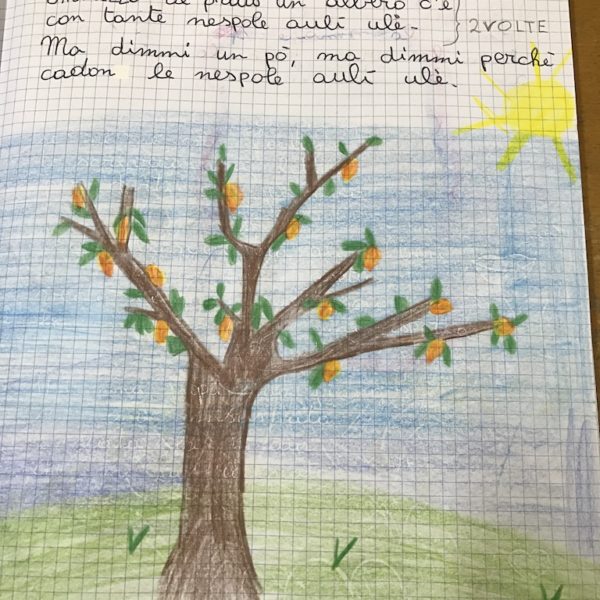 con tante nespole aulì ulè.
2 VOLTE
Ma dimmi un pò, ma dimmi perchè
cadon le nespole aulì ulè.